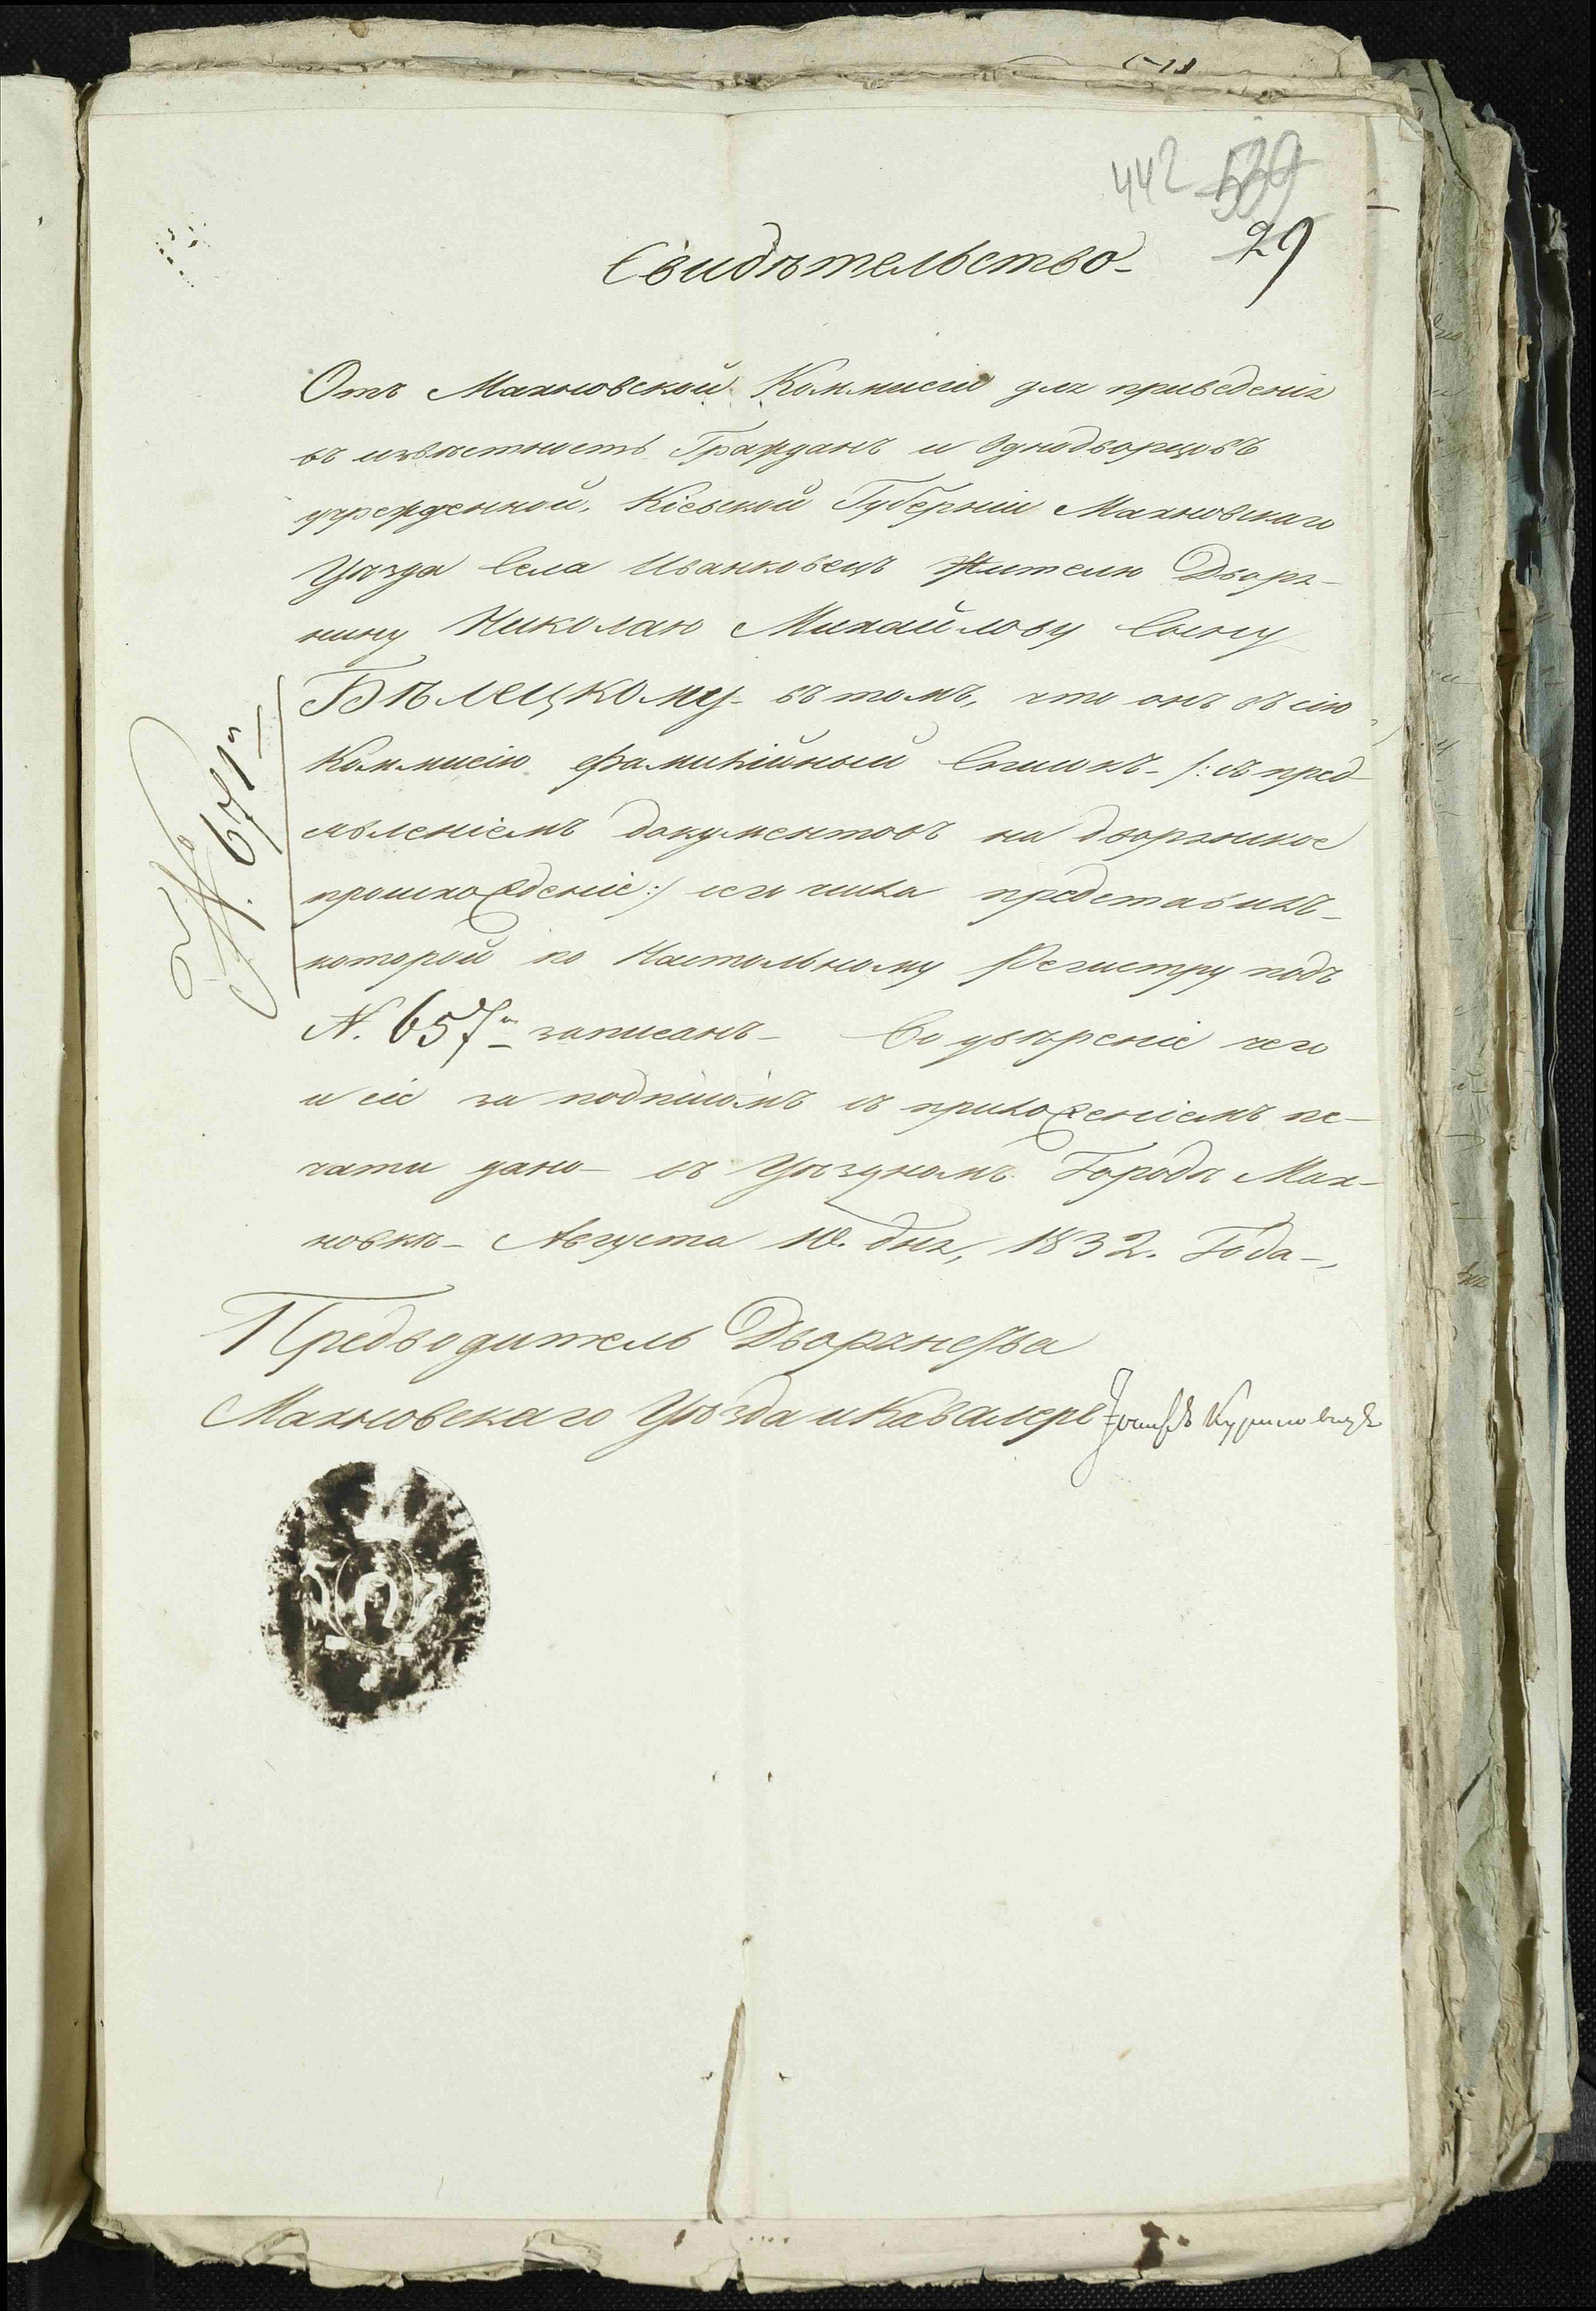 442 539
29
Свидѣтельство
Отъ Махновской Коммисіи для приведенія
въ извѣстность Гражданъ и Однодворцовъ
учрежденной, Кіевской Губерніи Махновскаго
Уѣзда Села Иванковецъ Жителю Дворя-
нину Николаю Михайлову Сыну
Бѣлецкому въ томъ, что онъ въ сію
Коммисію фамилійный Списокъ /: съ пред-
явленіемъ документовъ на дворянское
происхожденіе :/ сего числа представилъ
которой по Настольному Регистру подъ
N. 657 записанъ - Во увѣреніе чего
и сіе за подписомъ съ приложеніемъ пе-
чати дано въ Уѣздномъ Городѣ Мах-
новкѣ Августа 10. дня, 1832. Года
Предводитель Дворянства
Махновскаго Уѣзда и Кавалеръ
N. 671